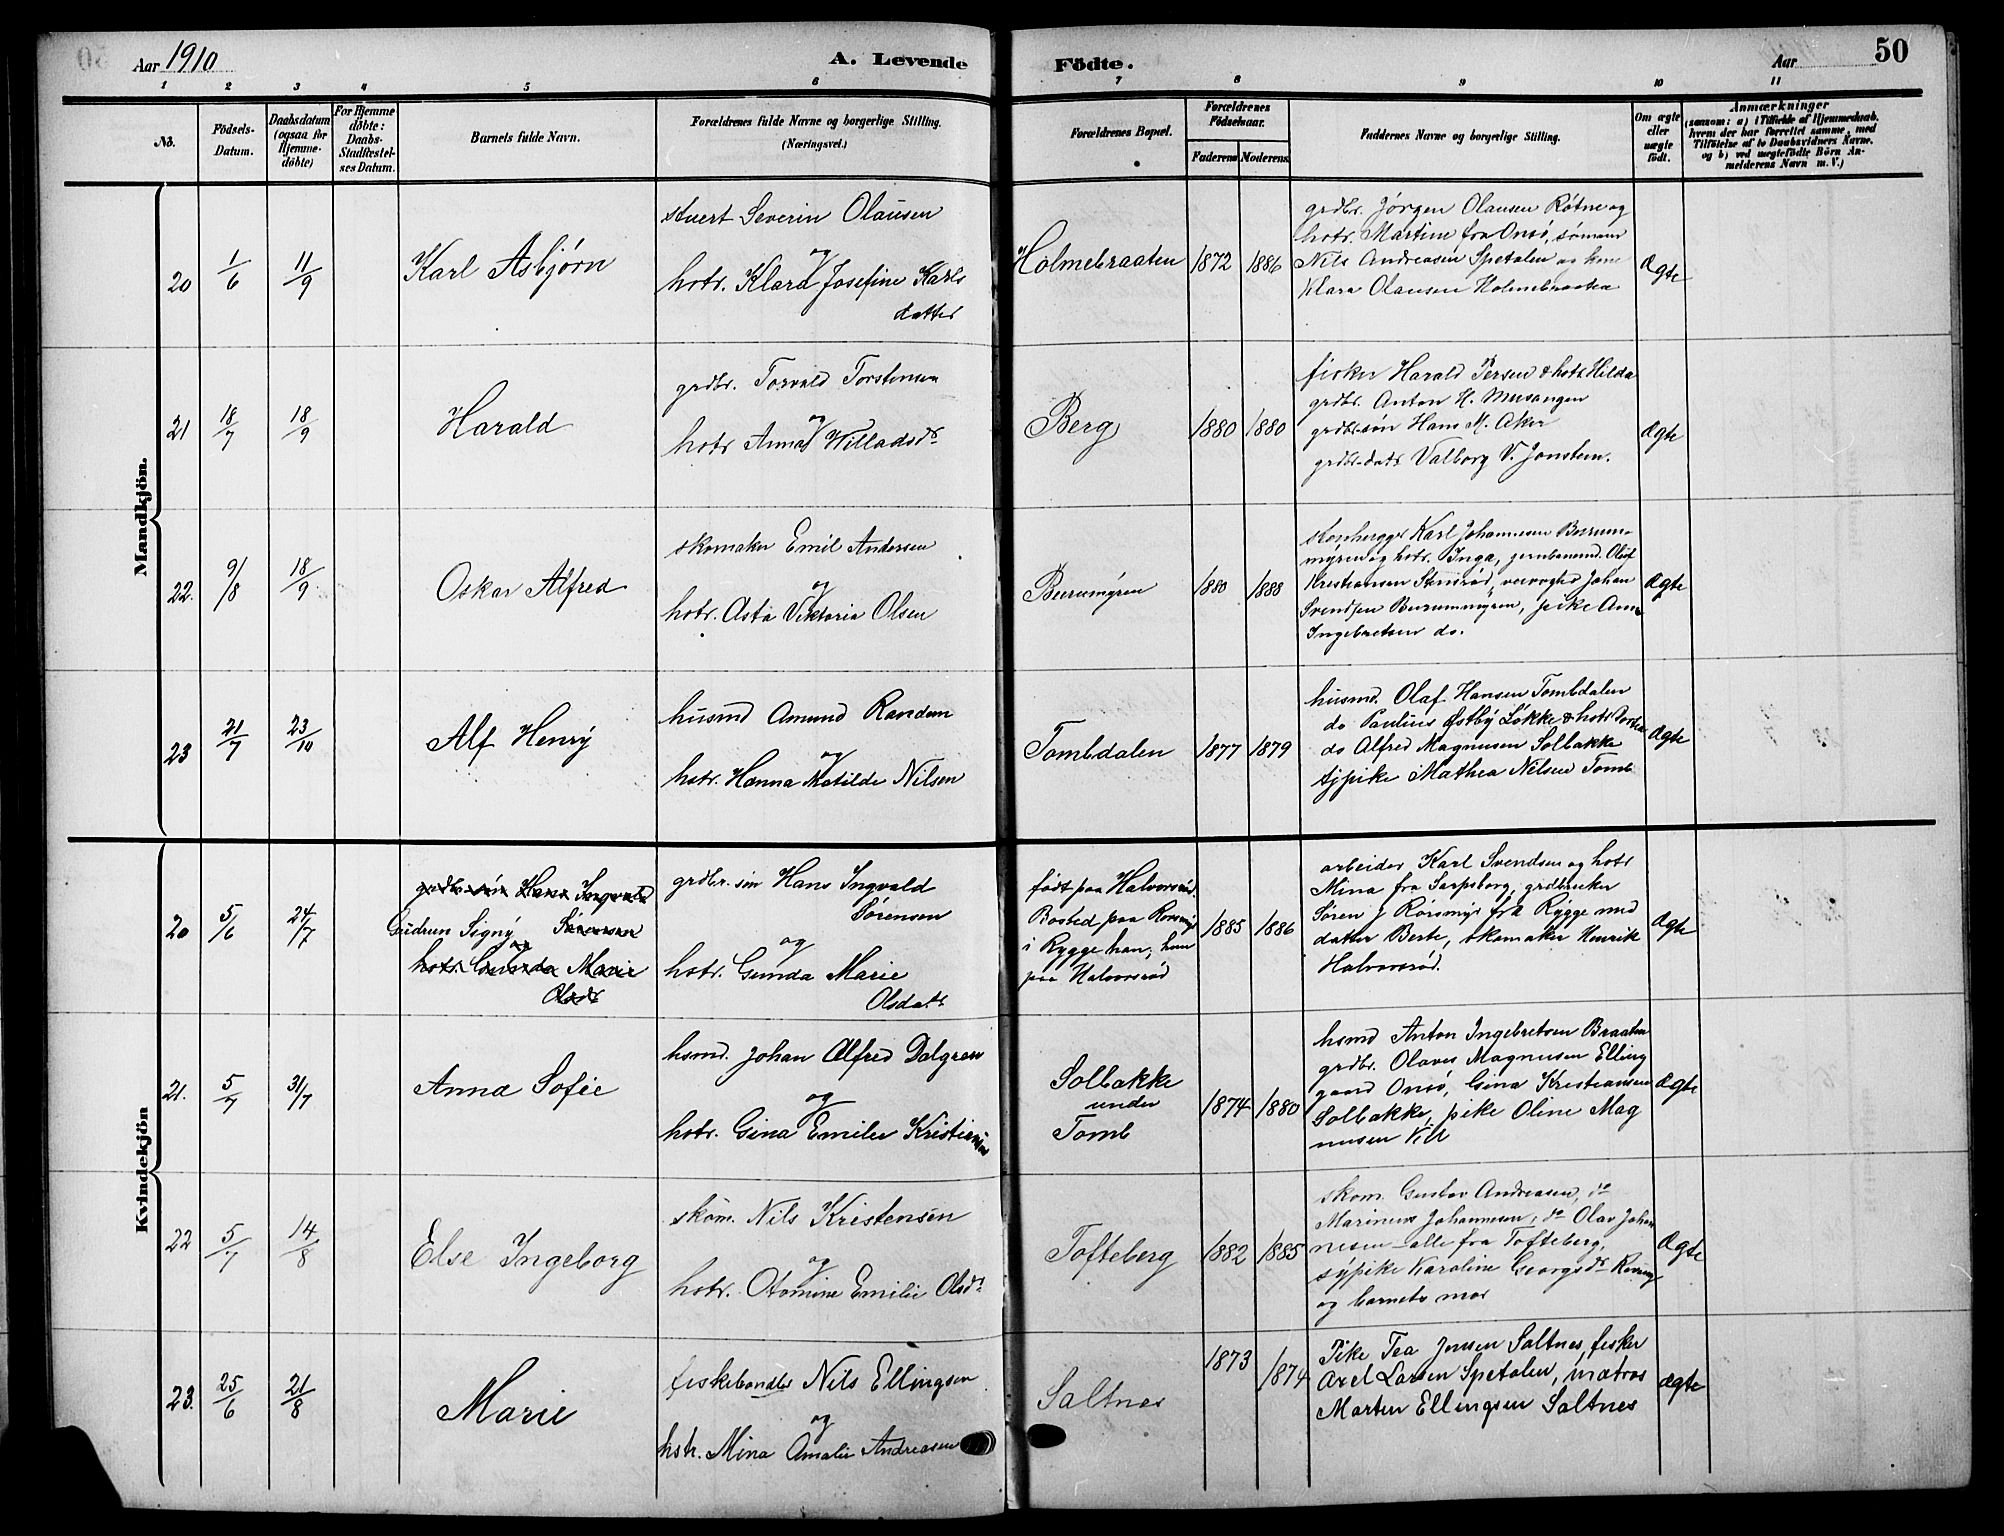 Aar 1910
A. Levende Födte.
Aar
50
1 2 3 4 5 6 7 8 9 10 11
No.
Födsels-
Datum.
Daabsdatum
(ogsaa for
Hjemme-
döbte)
For Hjemme
döbte:
Daabs-
Stadfæstel-
ses Datum.
Barnets fulde Navn.
Forældrenes fulde Navne og borgerlige Stilling.
(Næringsvei.)
Forældrenes Bopæl.
Forældrenes
Födselsaar.
Faderens Moderens
Faddernes Navne og borgerlige Stilling.
Om ægte
eller
uægte
födt.
Anmærkninger
(saasom: a) i Tilfælde af Hjemmedaab.
hvem der har forrettet samme, med
Tilföielse af to Daabsvidners Navne.
og b) ved uægtefödte Börn An-
melderens Navn m. V.)
Mandkjön.
20
1/6
11/9
Karl Asbjørn
stuert Severin Olausen
og
hstr. Klara Josefine Karls
datter
Holmebraaten
1872
1886
grdbr. Jørgen Olausen Røtne og
hstr. Martine fra Onsö, sömand
Nils Andreasen Spetalen og kone
Klara Olausen Holmebraaten
Ægte
21
18/7
18/9
Harald
grdbr. Torvald Torstensen
og
hstr Anna Willadsdr
Berg
1880
1880
fisker Harald Persen & hstr Hilda
grdbr. Anton H. Musangen
grdbrsøn Hans M. Aker
grdbr-datr Valborg V. Jonsten.
Ægte
22.
9/8
18/9
Oskar Alfred
skomaker Emil Andersen
og
hstr. Asta Viktoria Olsen
Beerumyren
1880
1888
stenhugger Karl Johannesen Beerum-
myren og hstr. Inga, jernbanemd. Olaf
Kristiansen Stensrød, veivogter Johan
Svendsen Beerummyren, pike Anna
Ingebretsen do.
Ægte
23
21/7
23/10
Alf Henry
husmd Amund Randem
og
hstr. Hanna Matilde Nilsen
Tombdalen
1877
1879
husmd. Olaf Hansen Tombdalen
do Paulius Østby Løkke & hstr
do Alfred Magnusen Solbakke
tjpike Mathea Nilsen Tomb
Ægte
Kvindekjön
20
5/6
24/7
grdbr søn Hans Ingvald
Gudrun Signy Sørensen
og
hstr. Gunda Marie
Olsdr
grdbr. søn Hans Ingvald
Sørensen
og
hstr. Gunda Marie
Olsdatr
født paa Halvorsrød.
Bosted paa Rørsmyr
i Rygge han, hun
paa Halvorsrød
1885
1886
arbeider Karl Svendsen og hstr
Mina fra Sarpsborg, grdbruker
Søren J Rørsmyr fra Rygge med
datter Berte, skomaker Henrik
Halvorsrød.
Ægte
21.
5/7
31/7
Anna Sofie
hsmd. Johan Alfred Dalgren
og
hstr. Gina Emilie Kristiansen
Solbakke
under
Tomb
1874
1880
hsmd Anton Ingebretsen Braaten
grdbr. Olaves Magnusen Elling
gaard Onsö, Gina Kristiansen
Solbakke, pike Oline Mag
nusen
Ægte
22
5/7
14/8
Else Ingeborg
skom. Nils Kristensen
og
hstr. Otomine Emilie Olsdr
Tofteberg
1882
1885
skom. Gustav Andreasen, do
Marinius Johannesen, do Olav Johan
nesen - alle fra Tofteberg,
sypike Karoline Georgsdr
og barnets mor
Ægte
23.
25/6
21/8
Marie
fiskehandler Nils Ellingsen
og
hstr. Mina Amalie Andreasen
Saltnes
1873
1874
Pike Tea Jensen Saltnes, fisker
Axel Larsen Spetalen, matros
Marten Ellingsen Saltnes
Ægte